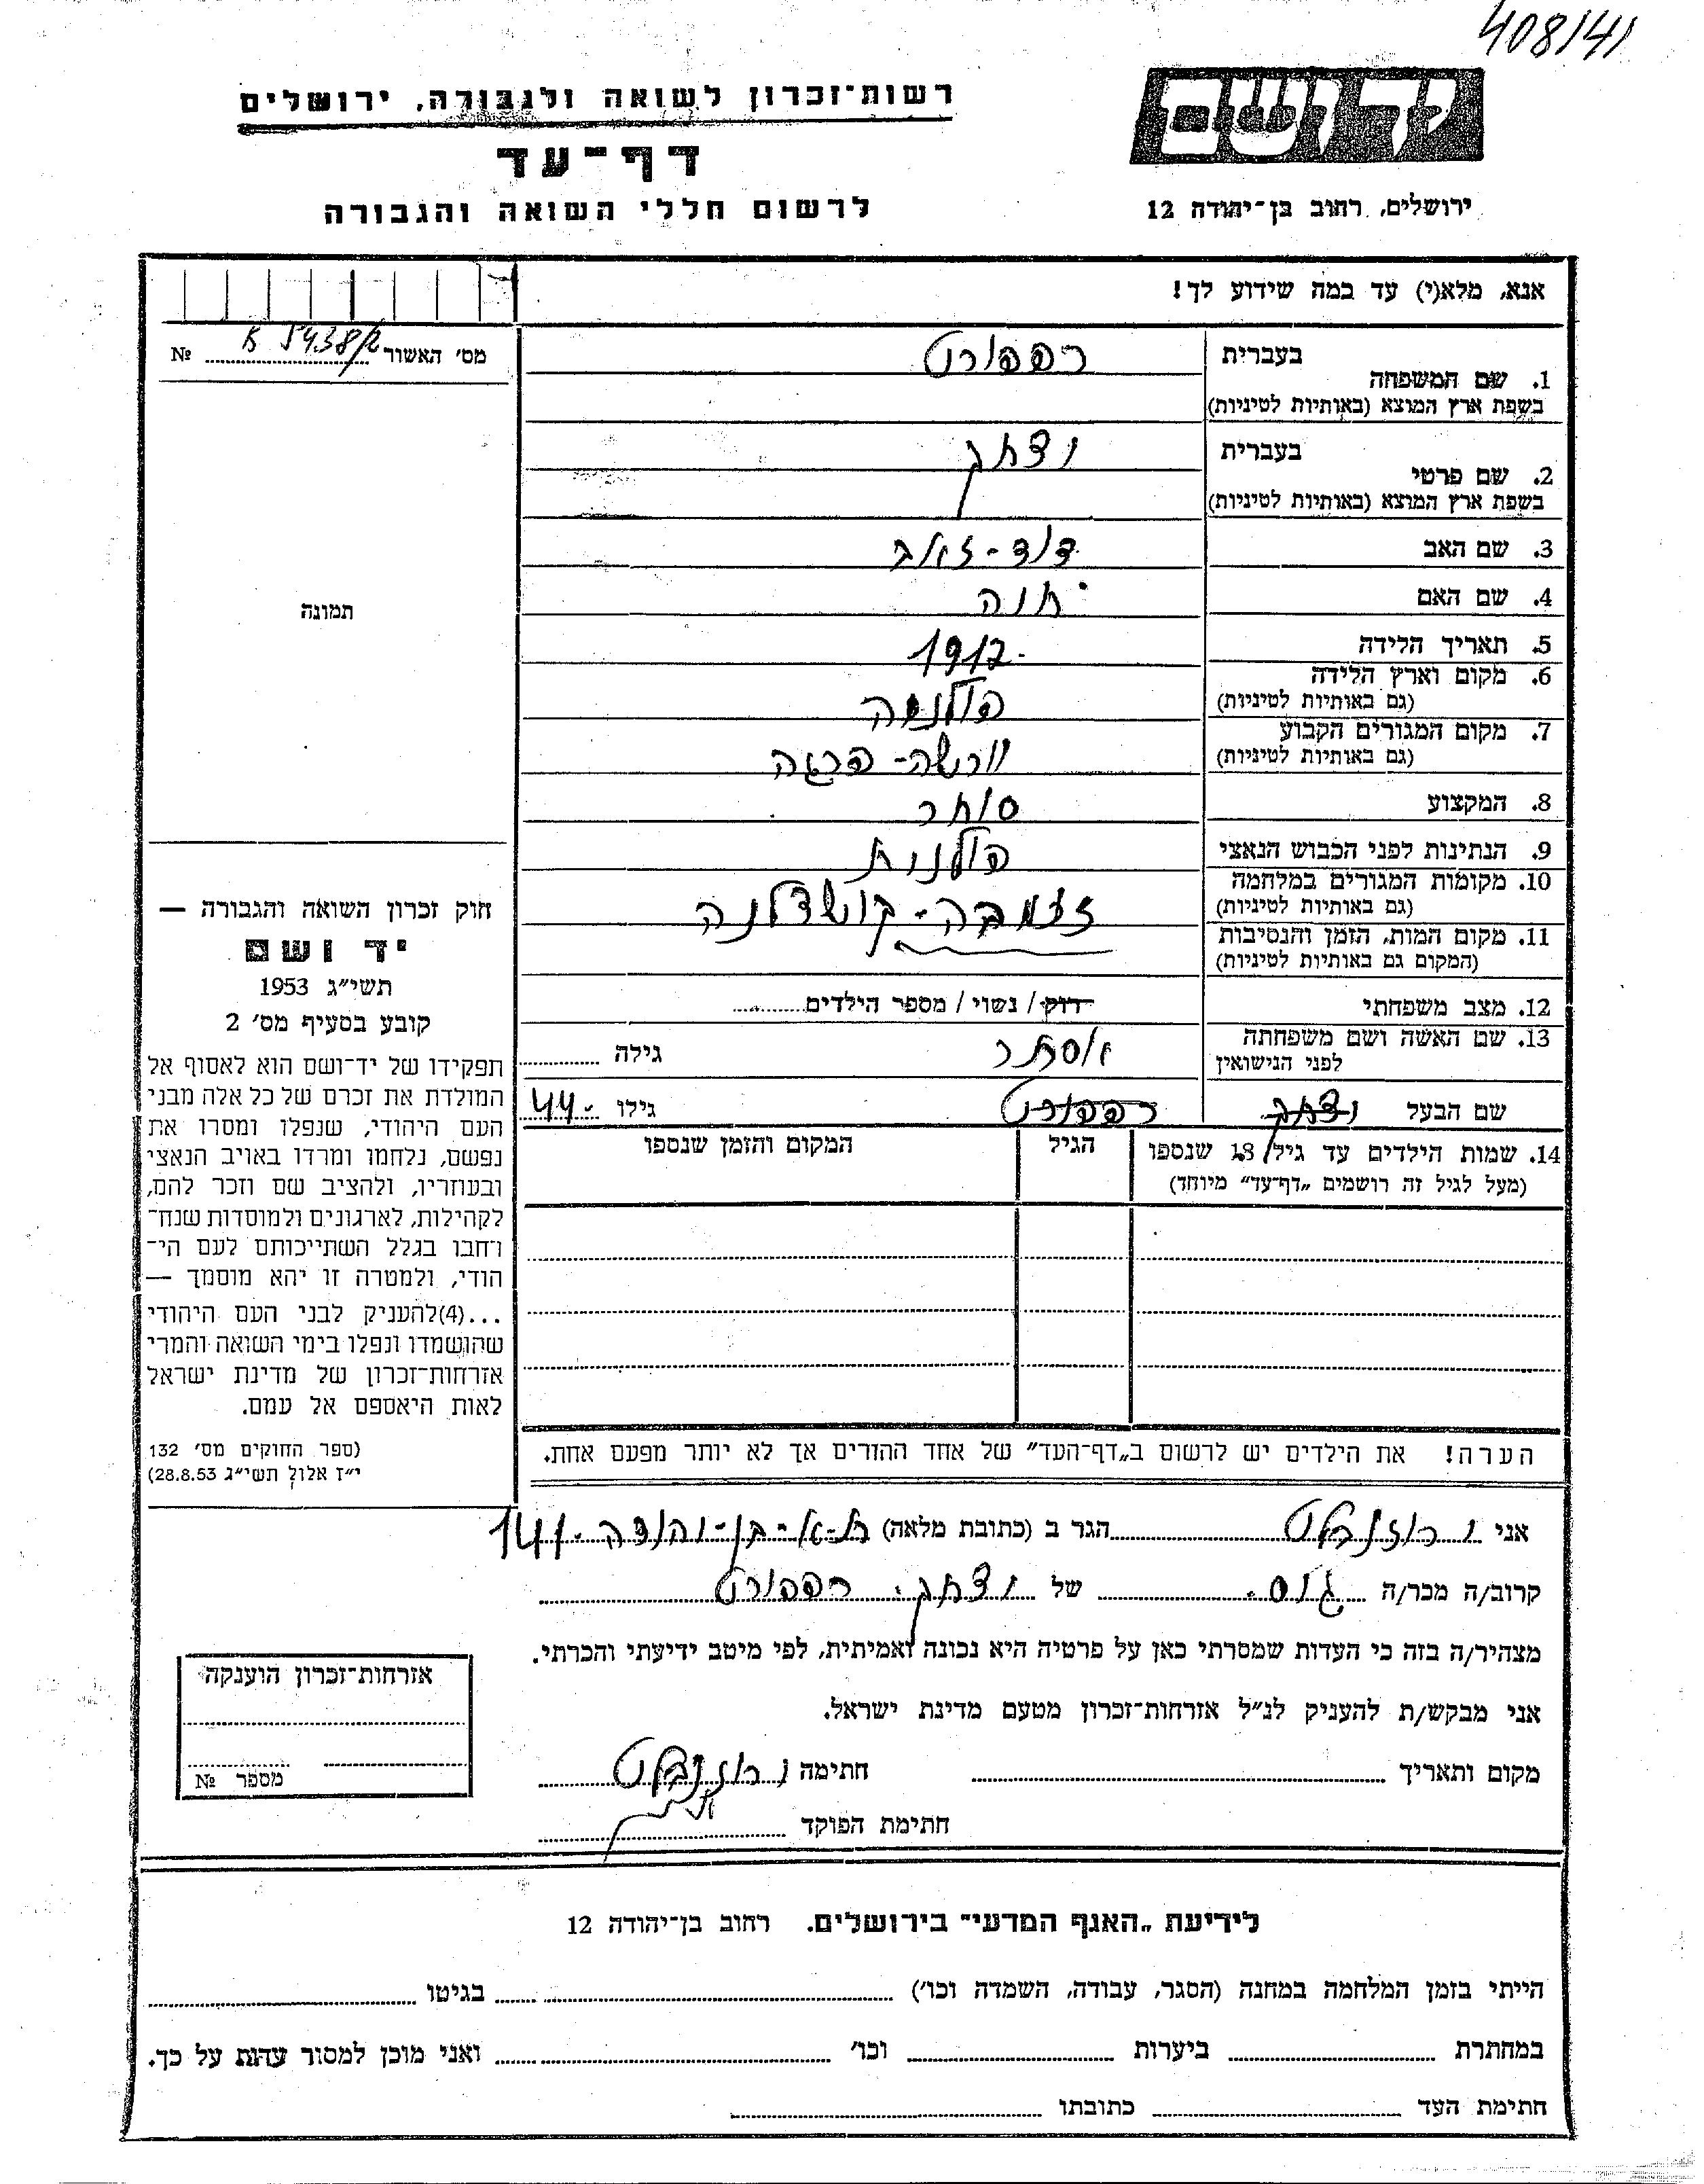 408/41
ידושם
רשות־זכרון לשואה ולגבורה, ירושלים
דף־עד
ירושלים, רחוב בן־יהודה 12
לרשום חללי השואה והגבורה
אנא, מלא(י) עד כמה שידוע לך!
מס׳ האשור № 5438/2
בעברית רפפורט
1. שם המשפחה
בשפת ארץ המוצא (באותיות לטיניות)
בעברית יצחק
2. שם פרטי
בשפת ארץ המוצא (באותיות לטיניות)
3. שם האב דוד-זאב
4. שם האם חנה
תמונה
5. תאריך הלידה 1912
6. מקום וארץ הלידה
(גם באותיות לטיניות) פולניה
7. מקום המגורים הקבוע
(גם באותיות לטיניות) וורשה-פרגה
8. המקצוע סוחר
9. הנתינות לפני הכבוש הנאצי פולנית
10. מקומות המגורים במלחמה
(גם באותיות לטיניות)
11. מקום המות, הזמן והנסיבות
(המקום גם באותיות לטיניות)
12. מצב משפחתי רוק / נשוי / מספר הילדים
13. שם האשה ושם משפחתה
לפני הנישואין אסתר גילה
שם הבעל יצחק רפפורט גילו 44
14. שמות הילדים עד גיל 18 שנספו
(מעל לגיל זה רושמים „דף־עד״ מיוחד)
הגיל
המקום והזמן שנספו
חוק זכרון השואה והגבורה —
יד ושם
תשי״ג 1953
קובע בסעיף מס׳ 2
תפקידו של יד־ושם הוא לאסוף אל
המולדת את זכרם של כל אלה מבני
העם היהודי, שנפלו ומסרו את
נפשם, נלחמו ומרדו באויב הנאצי
ובעוזריו, ולהציב שם וזכר להם,
לקהילות, לארגונים ולמוסדות שנח־
רחבו בגלל השתייכותם לעם הי־
הודי, ולמטרה זו יהא מוסמך —
...(4)להעניק לבני העם היהודי
שהושמדו ונפלו בימי השואה והמרי
אזרחות־זכרון של מדינת ישראל
לאות היאספם אל עמם.
(ספר החוקים מס׳ 132
י״ז אלול תשי״ג 28.8.53)
הערה! את הילדים יש לרשום ב„דף־העד״ של אחד ההורים אך לא יותר מפעם אחת.
אני י רוזנבלט הגר ב (כתובת מלאה) ת-א-בן-יהודה 141
קרוב/ה מכר/ה גיס של יצחק רפפורט
מצהיר/ה בזה כי העדות שמסרתי כאן על פרטיה היא נכונה ואמיתית, לפי מיטב ידיעתי והכרתי.
אני מבקש/ת להעניק לנ״ל אזרחות־זכרון מטעם מדינת ישראל.
מקום ותאריך חתימה י רוזנבלט
חתימת הפוקד
אזרחות־זכרון הוענקה
מספר №
לידיעת „האגף המדעי״ בירושלים. רחוב בן־יהודה 12
הייתי בזמן המלחמה במחנה (הסגר, עבודה, השמדה וכו׳) בגיטו
במחתרת ביערות וכו׳ ואני מוכן למסור עדות על כך.
חתימת העד כתובתו